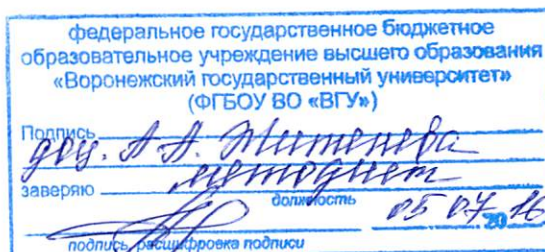 федеральное государственное бюджетное
образовательное учреждение высшего образования
«Воронежский государственный университет»
(ФГБОУ ВО «ВГУ»)
Подпись
доц. А.А. Житенева
заверяю методист
должность
05 07 2016
подпись, расшифровка подписи